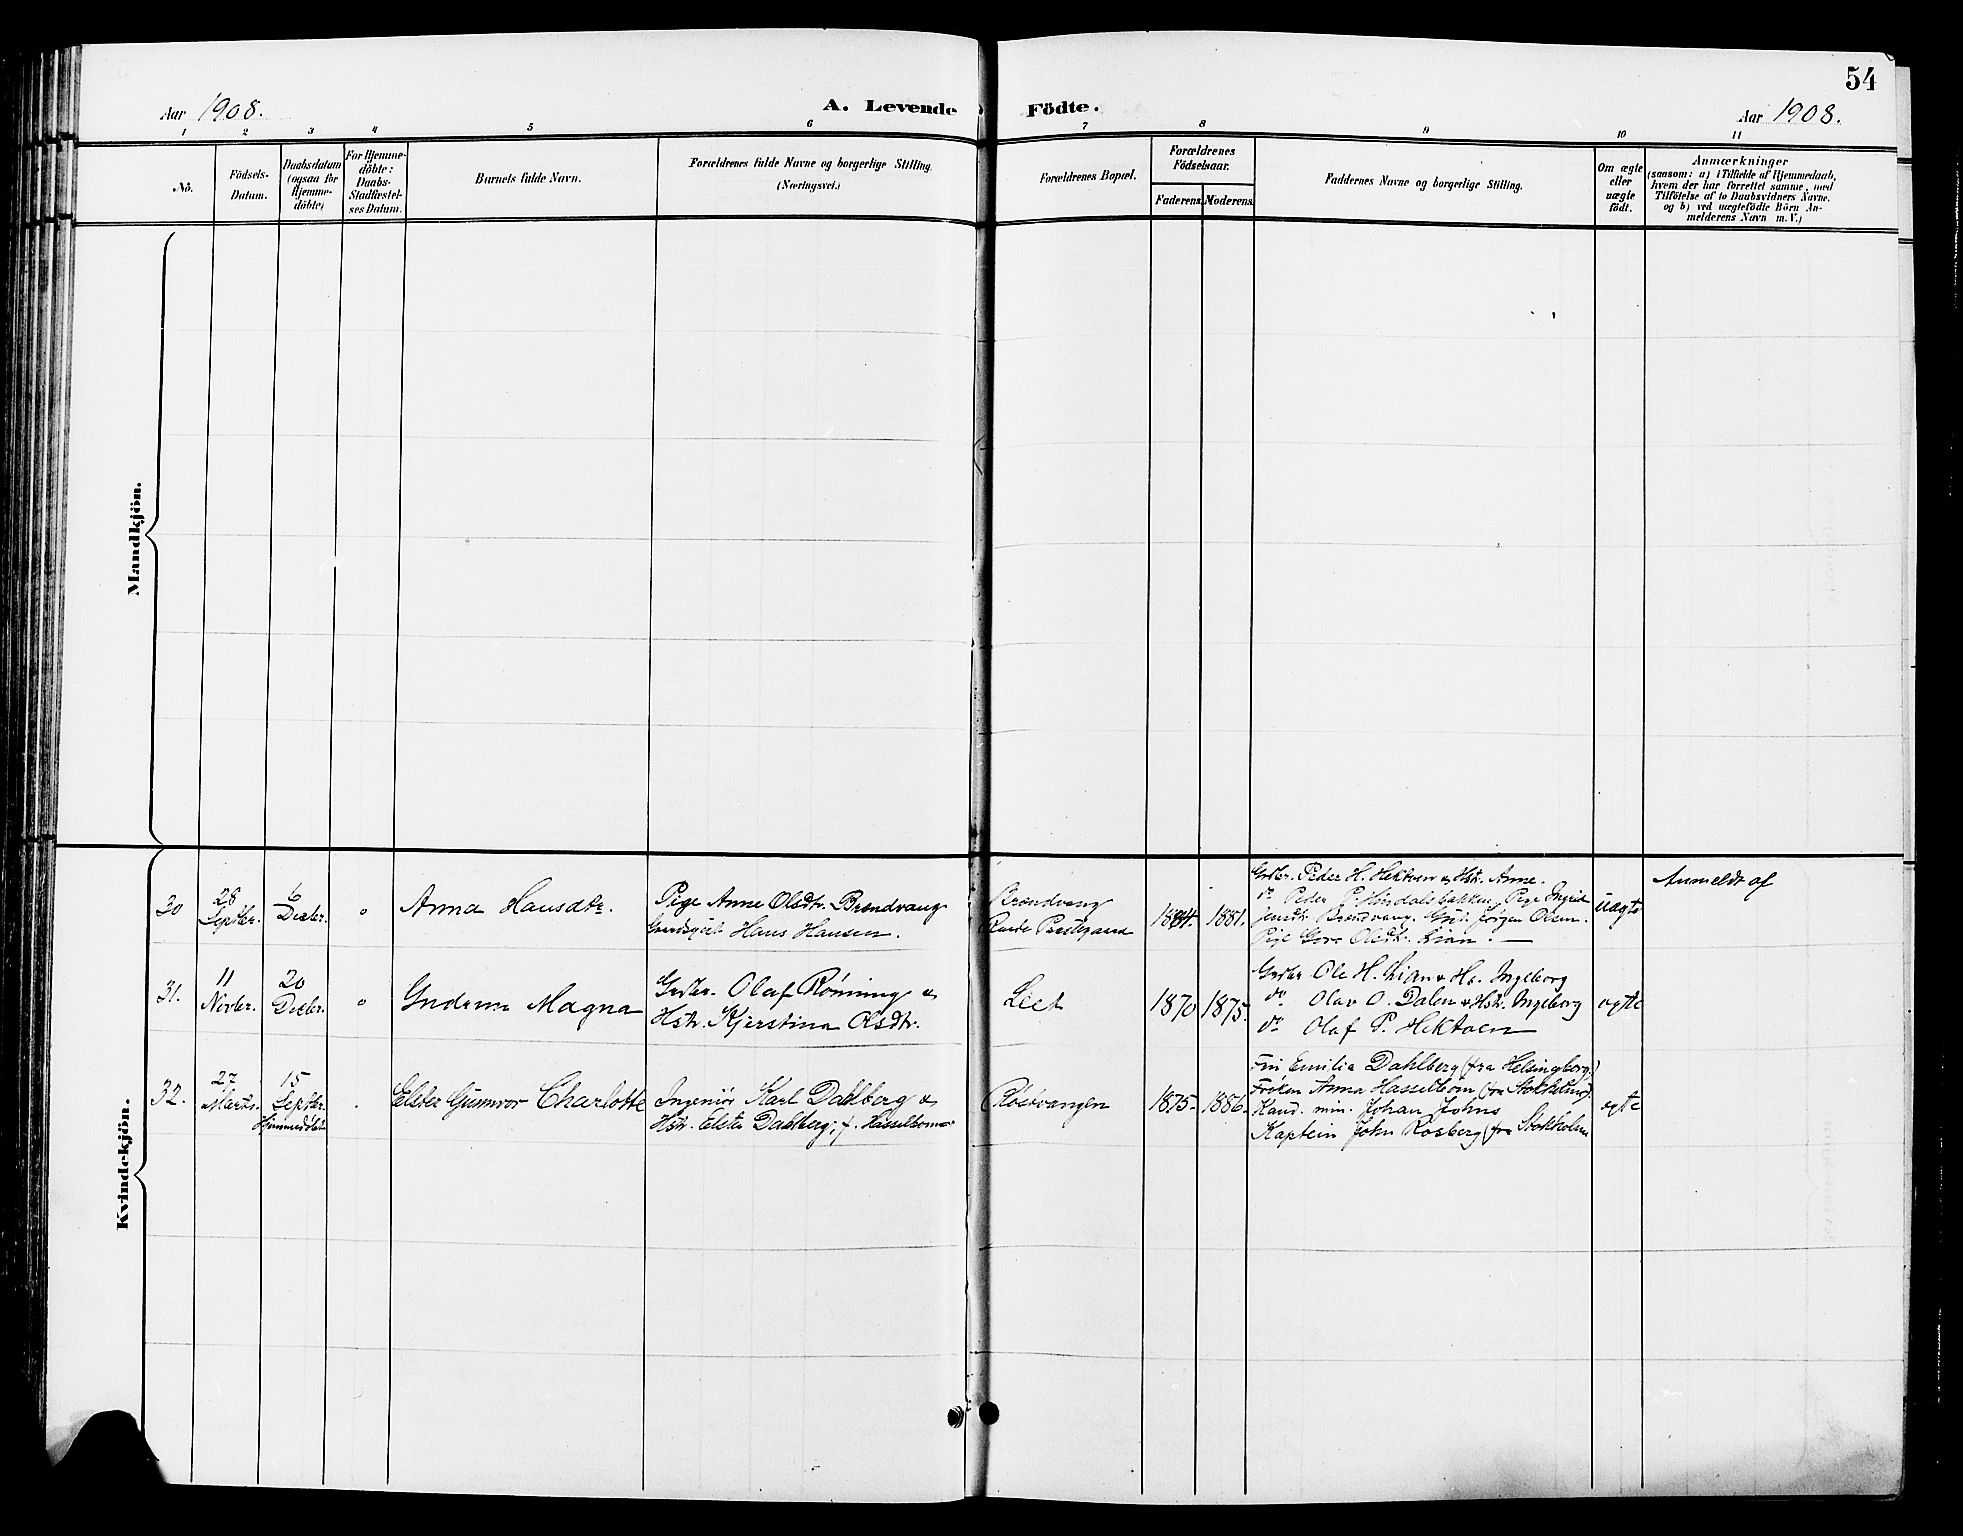 54
Aar 1908.
A. Levende Födte.
Aar 1908.
1 2 3 4 5 6 7 8 9 10 11
Nô.
Födsels-
Datum.
Daabsdatum
(ogsaa for
Hjemme-
döbte)
For Hjemme-
döbte:
Daabs-
Stadfæstel-
ses Datum.
Barnets fulde Navn.
Forældrenes fulde Navne og borgerlige Stilling.
(Næringsvei.)
Forældrenes Bopæl.
Forældrenes
Födselsaar.
Faderens.
Moderens.
Faddernes Navne og borgerlige Stilling.
Om ægte
eller
uægte
födt.
Anmærkninger
(saasom: a) i Tilfælde af Hjemmedaab,
hvem der har forrettet samme, med
Tilföielse af to Daabsvidners Navne,
og b) ved uægtefödte Börn An-
melderens Navn m. V.)
Mandkjön.
Kvindekjön.
30
28
Septbr.
6
Decbr.
Anna Hansdtr.
Pige Anne Olsdtr. Brendvang
Hans Hansen.
Brendvang
1881.
Grdbr. Peder H. Hektoen & Hstr. Anne.
do Peder P. Hindalsbakken, Pige Ingrid
Jensdtr. Brendvang. Gut. Jørgen Olsen.
Pige Olsdtr. Lian.
uægte
Anmeldt af
31.
11
Novbr.
20
Decbr.
Gudrun Magna
Grdbr. Olaf Rønning &
Hstr. Kjerstina Olsdtr.
Liet
1870
1875.
Grdbr Ole H. Lian & Hs. Ingeborg
do Olav O. Dalen & Hstr. Ingeborg
do Olaf P. Hektoen
ægte
32.
27
Marts.
15
Septbr.
Hjemmedøbt
Elster Gunnvor Charlotte
Ingeniør Karl Dahlberg &
Hstr. Elster Dahlberg, f. Hasselbom
Røstvangen
1875.
1886.
Emilia Dahlberg (fra Helsingborg)
Frøken Anna Hasselbom (fra Stokholm)
Kand. min. Johan Johns
Kaptein John Rosberg (fra Stokholm
ægte